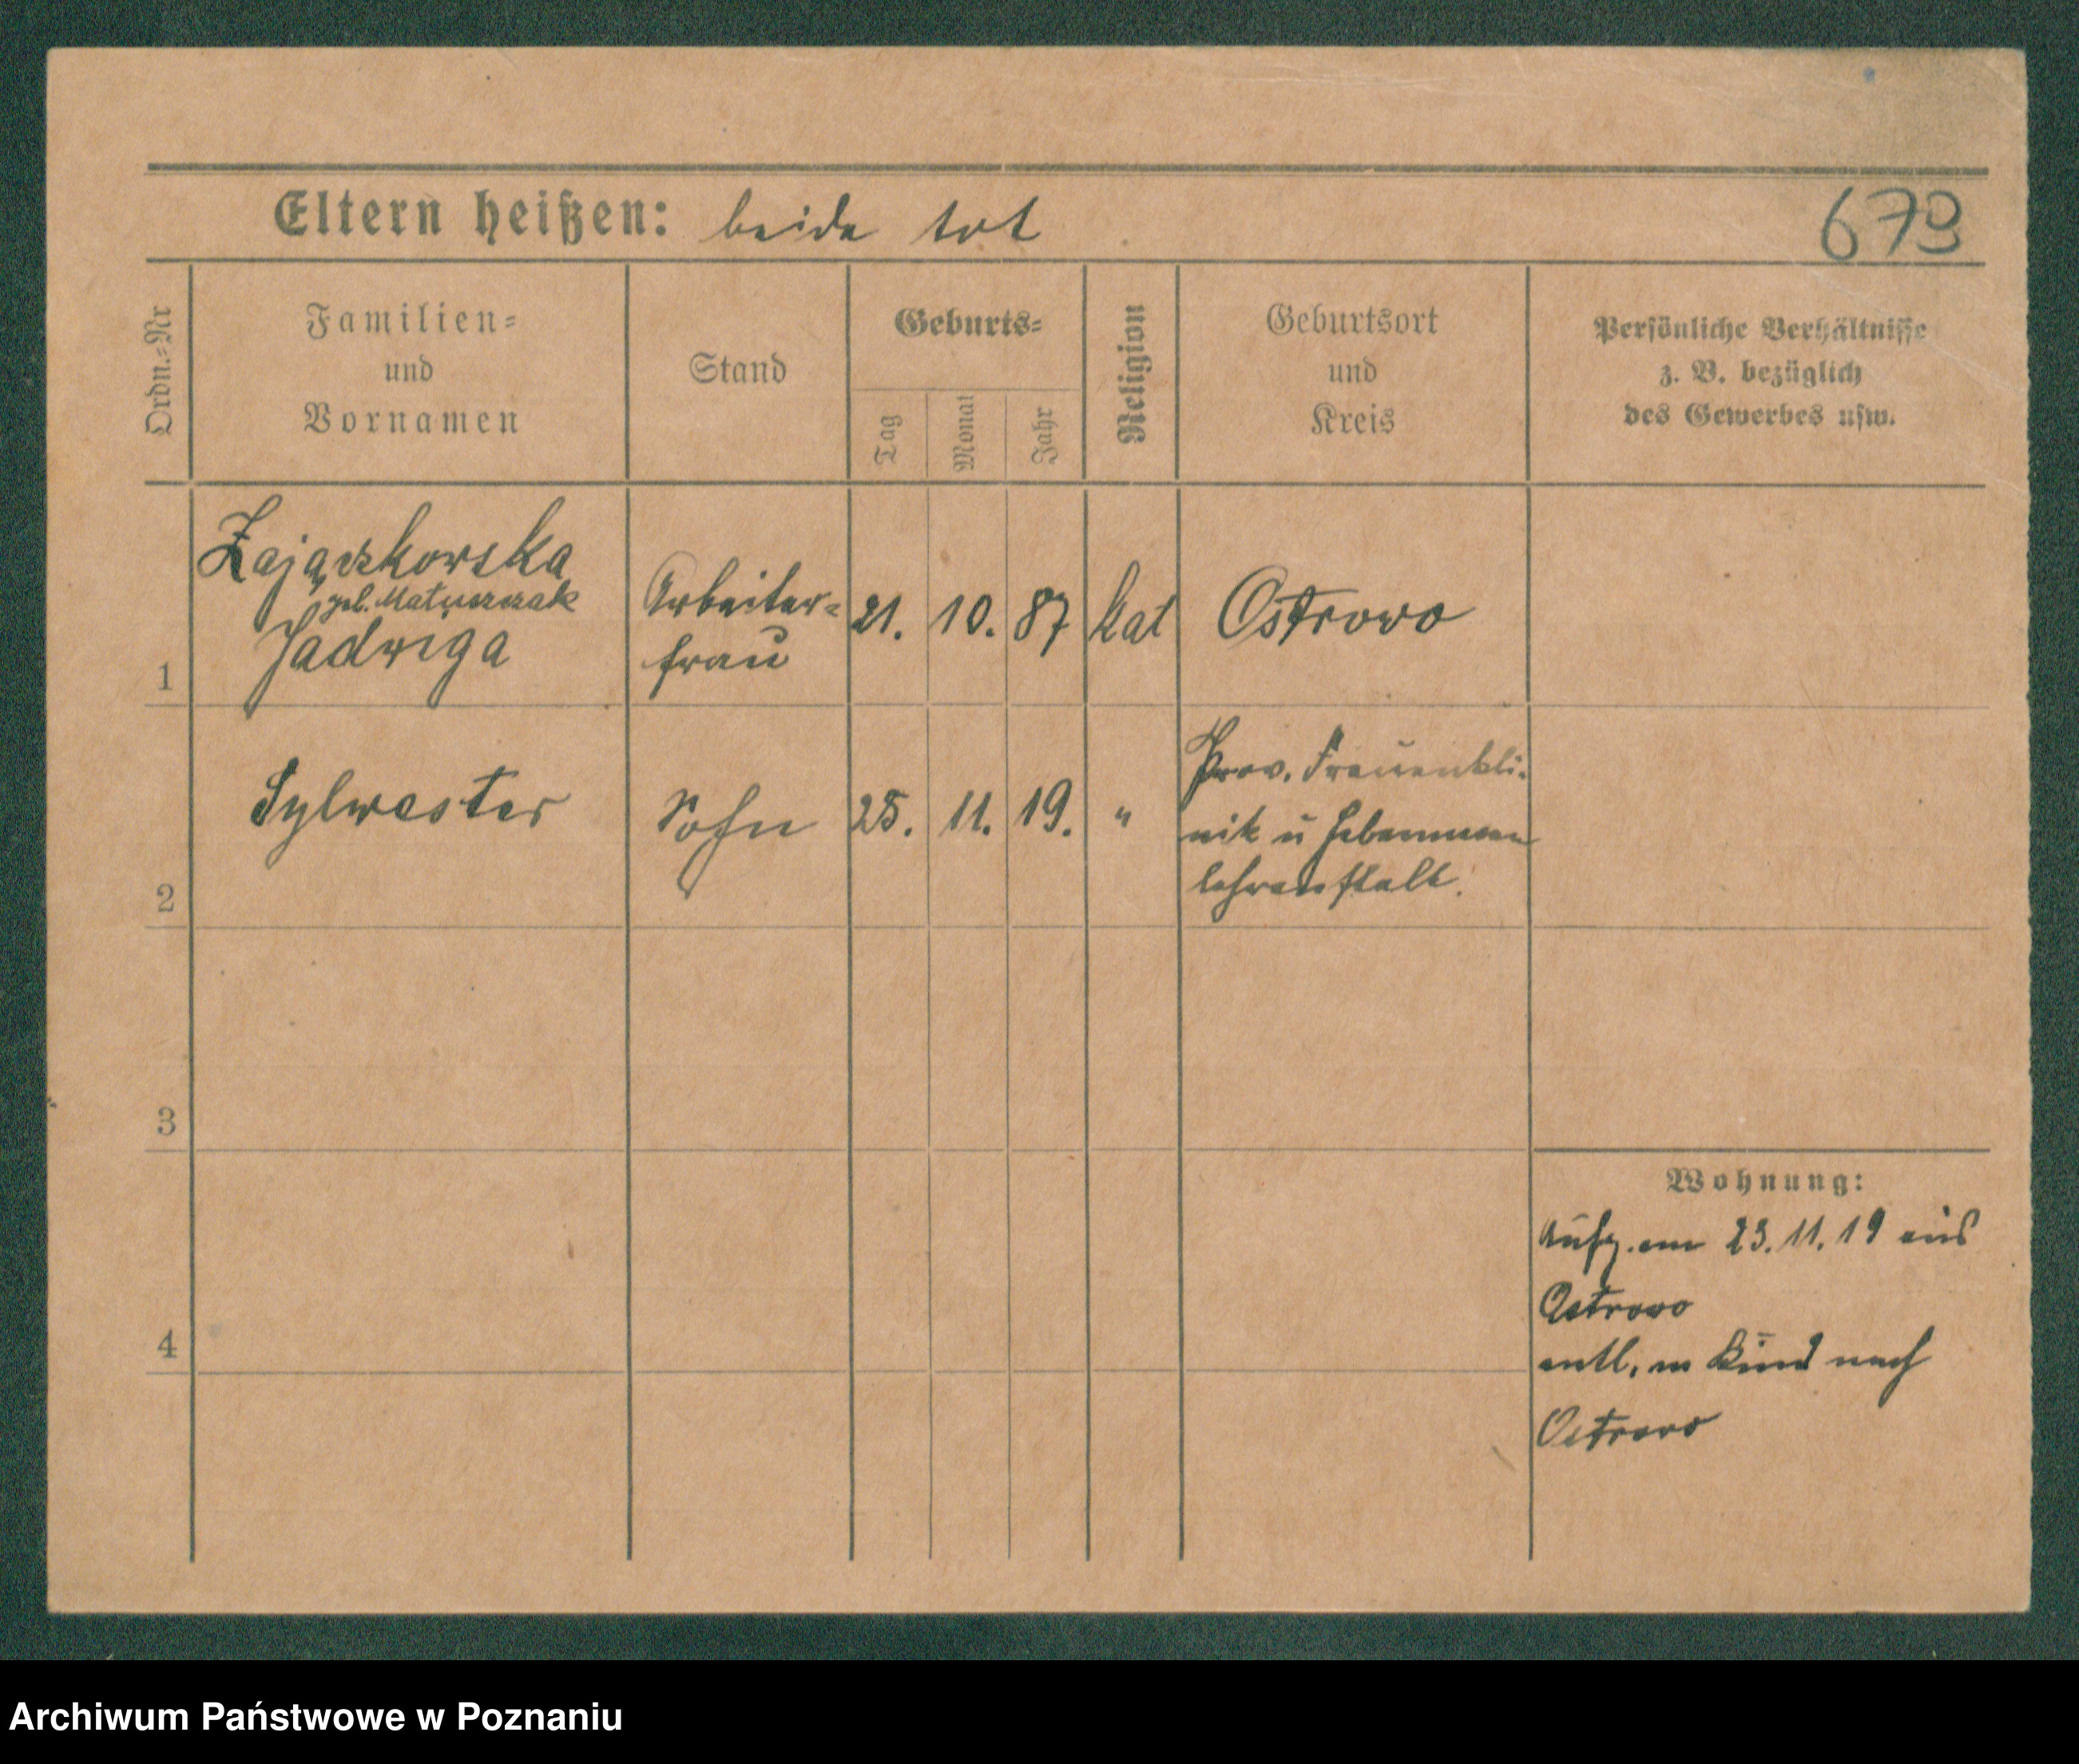 Eltern heißen: beide tot
673
Ordn.=Nr
Familien=
und
Vornamen
Stand
Geburts=
Tag
Monat
Jahr
Religion
Geburtsort
und
Kreis
Persönliche Verhältnisse
z. B. bezüglich
des Gewerbes usw.
1
Zajączkowska
geb. Matuszczak
Jadwiga
Arbeiter=
frau
21. 10. 87
kat
Ostrowo
2
Sylwester
Sohn
25. 11. 19.
"
Prov. Frauenkli-
nik u Hebammen
lehranstalt.
3
4
Wohnung:
Aufg. am 23.11.19 aus
Ostrowo
entl. m Kind nach
Ostrowo
Archiwum Państwowe w Poznaniu